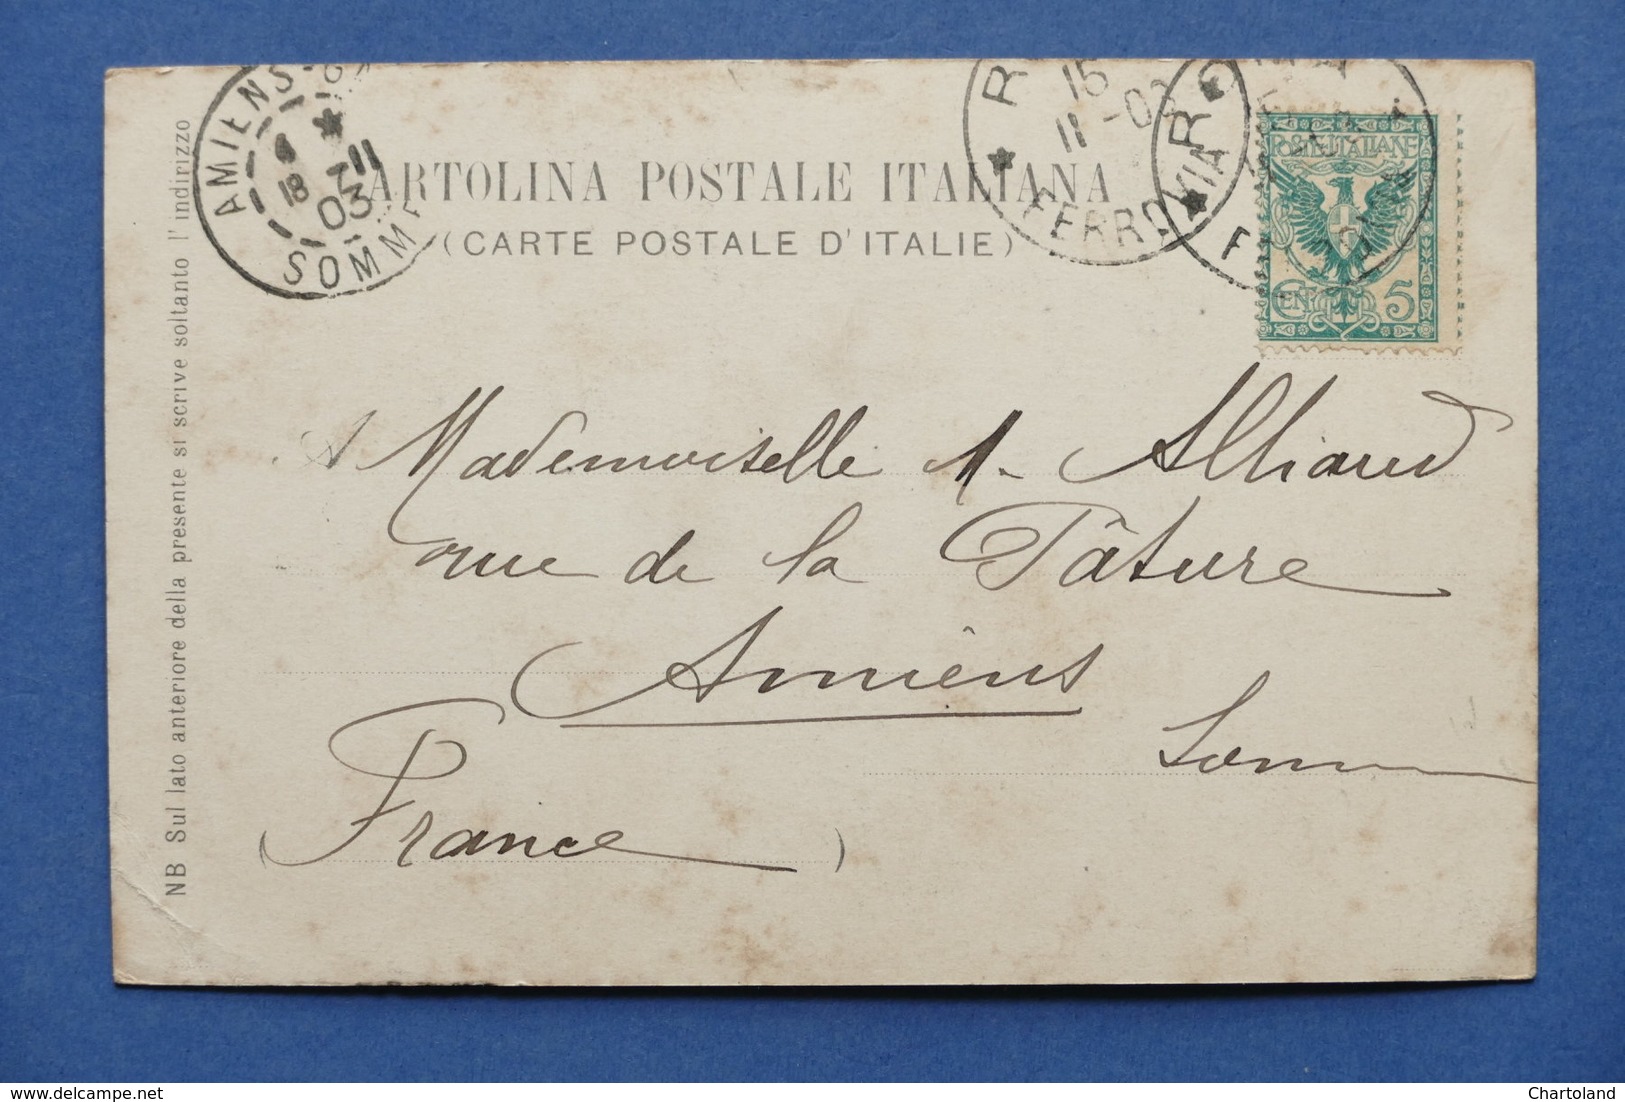 AMIENS-GA
18 11
03
SOMME
15
11 - 03
FERROVIA
ROMA
POSTE ITALIANE
CEN. 5
CARTOLINA POSTALE ITALIANA
(CARTE POSTALE D'ITALIE)
NB Sul lato anteriore della presente si scrive soltanto l'indirizzo
Mademoiselle M. Alliaud
rue de la Pâture
Amiens
Somme
(France)
www.delcampe.net
Chartoland